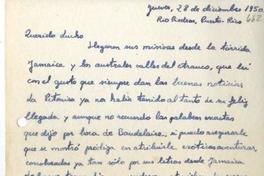 Jueves, 28 de diciembre 1950
Río Piedras, Puerto Rico
662
Querido Lucho
Llegaron sus misivas desde la tórrida
Jamaica y las australes calles del Arauco, que leí
con el gusto que siempre dan las buenas noticias
ya no había tenido al tanto de su feliz
llegada, y aunque no recuerdo las palabras exactas
que dijo por boca de Baudelaire, si puedo asegurarle
que se mostró pródiga en atribuirle exóticas aventuras,
ya tan sólo por sus letras desde Jamaica